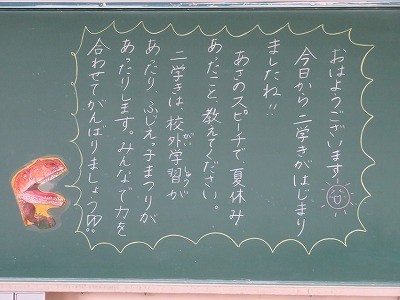 おはようございます
今日から二学きがはじまり
ましたね!!
あさのスピーチで、夏休み
あったこと、教えてください。
二学きは、校外学習が
がい しゅう
あったり、ふじえっ子まつりが
あったりします。みんなで力を
合わせてがんばりましょう!!